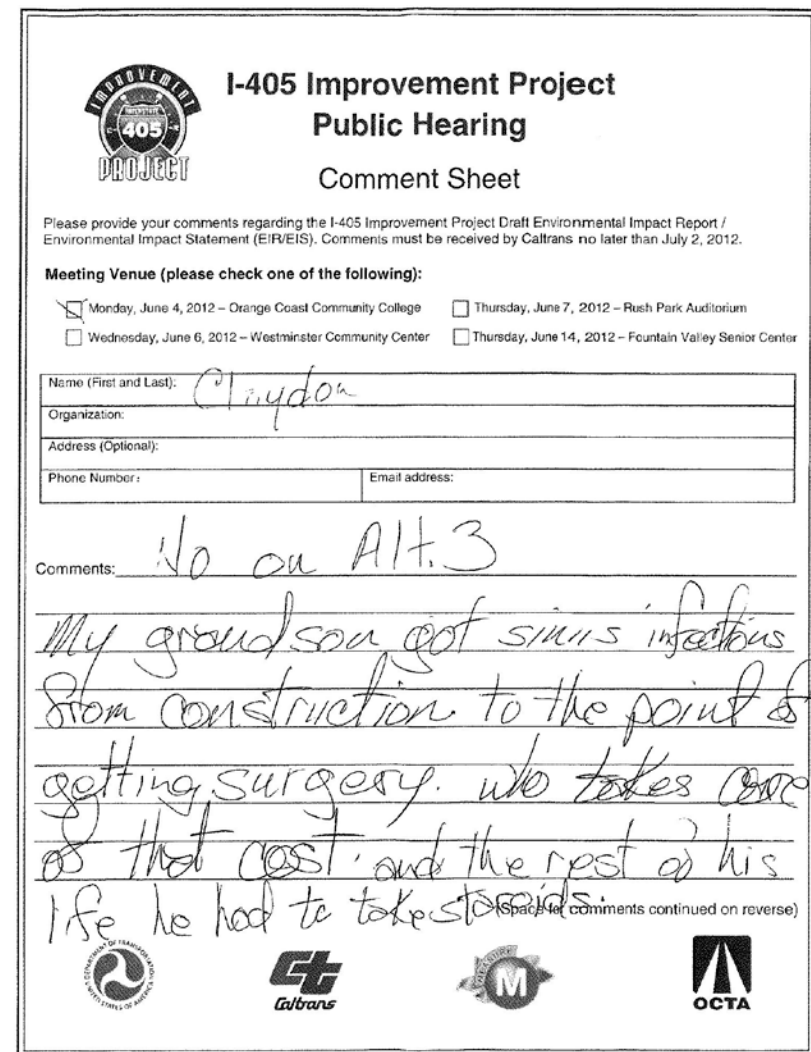 IMPROVEMENT
INTERSTATE
405
PROJECT
I-405 Improvement Project
Public Hearing
Comment Sheet
Please provide your comments regarding the I-405 Improvement Project Draft Environmental Impact Report /
Environmental Impact Statement (EIR/EIS). Comments must be received by Caltrans no later than July 2, 2012.
Meeting Venue (please check one of the following):
Monday, June 4, 2012 – Orange Coast Community College Thursday, June 7, 2012 – Rush Park Auditorium
Wednesday, June 6, 2012 – Westminster Community Center Thursday, June 14, 2012 – Fountain Valley Senior Center
Name (First and Last):
Organization:
Address (Optional):
Phone Number: Email address:
Comments: No on Alt. 3
My grandson got sinus infections
from construction to the point of
getting surgery. who takes care
of that cost. and the rest of his
life he had to take steroids.
(Space for comments continued on reverse)
DEPARTMENT OF TRANSPORTATION
UNITED STATES OF AMERICA
Ct
Caltrans
MEASURE
M
OCTA